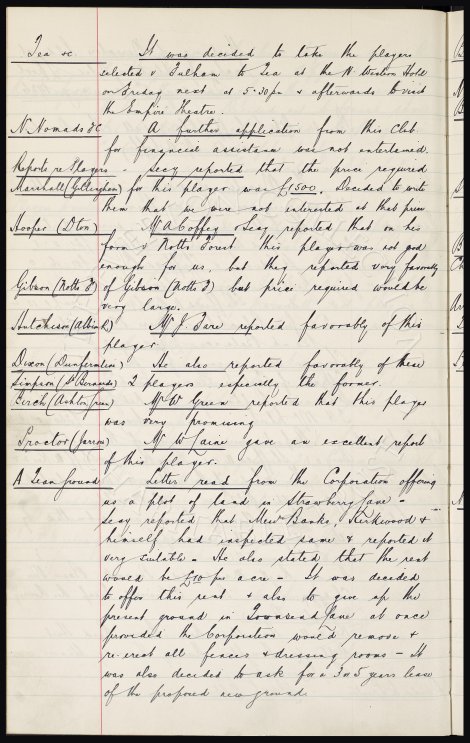 Tea &c It was decided to take the players
selected v Fulham to Tea at the N. Western Hotel
on Friday next at 5.30pm & afterwards to visit
the Empire Theatre.
N Nomads FC A further application from this Club
for financial assistance was not entertained.
Reports re Players - Secy reported that the price required
Marshall (Gillingham) for this player was £1500. Decided to write
them that we were not interested at that price
Hooper (Dton) Mr A Coffey & Secy reported that on his
form v Notts Forest this player was not good
enough for us, but they reported very favorably
Gibson (Notts F) of Gibson (Notts F) but price required would be
very large.
Hutchison (Albion R) Mr J. Fare reported favorably of this
player
Dixon (Dunfermline) He also reported favorably of these
Simpson (St Bernards) 2 players especially the former.
Birch (Ashton Green) Mr W Green reported that this player
was very promising
Proctor (Jarrow) Mr W Laine gave an excellent report
of this player.
A Team Ground Letter read from the Corporation offering
us a plot of land in Strawberry Lane -
Secy reported that Messrs Banks, Kirkwood &
himself had inspected same & reported it
very suitable - He also stated that the rent
would be £10 per acre - It was decided
to offer this rent & also to give up the
present ground in Townsend Lane at once
provided the Corporation would remove &
re-erect all fences & dressing rooms - It
was also decided to ask for a 3 or 5 years lease
of the proposed new ground